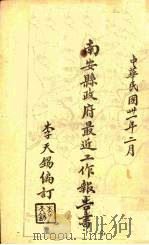 中華民國卅一年二月
南安縣政府最近工作報告書
李天錫編訂